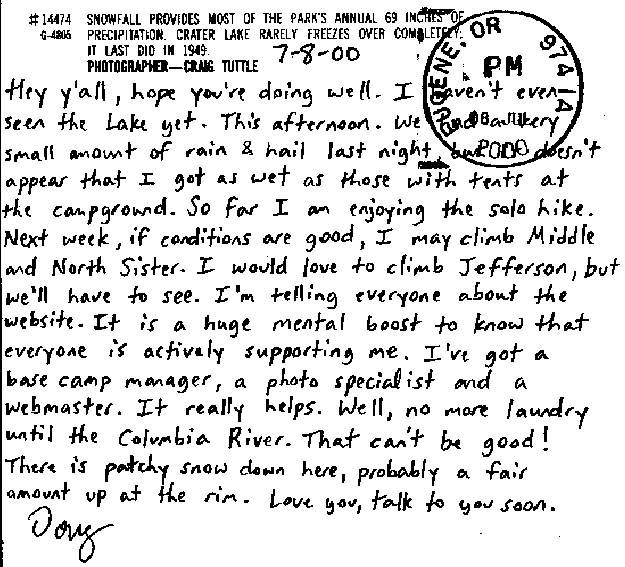 #14474 SNOWFALL PROVIDES MOST OF THE PARK'S ANNUAL 69 INCHES OF
G-4806 PRECIPITATION. CRATER LAKE RARELY FREEZES OVER COMPLETELY.
IT LAST DID IN 1949.
PHOTOGRAPHER—CRAIG TUTTLE
7-8-00
EUGENE, OR 974 1A
PM
2000
Hey y'all, hope you're doing well. I haven't even
seen the Lake yet. This afternoon. We had a very
small amount of rain & hail last night, but doesn't
appear that I got as wet as those with tents at
the campground. So far I am enjoying the solo hike.
Next week, if conditions are good, I may climb Middle
and North Sister. I would love to climb Jefferson, but
we'll have to see. I'm telling everyone about the
website. It is a huge mental boost to know that
everyone is actively supporting me. I've got a
base camp manager, a photo specialist and a
webmaster. It really helps. Well, no more laundry
until the Columbia River. That can't be good!
There is patchy snow down here, probably a fair
amount up at the rim. Love you, talk to you soon.
Doug